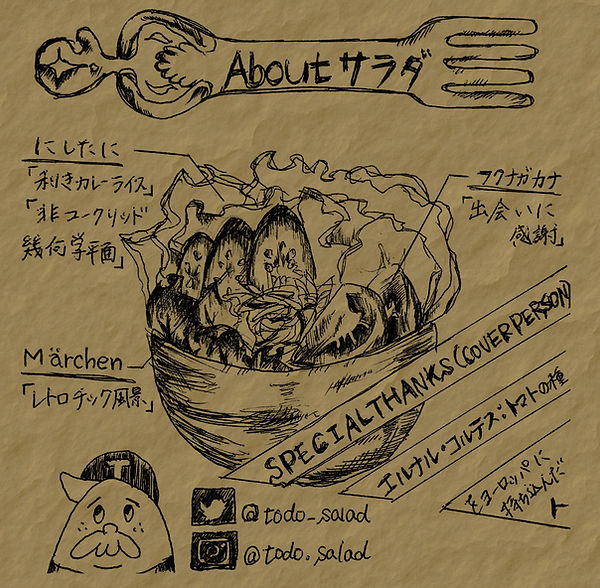 Aboutサラダ
にしたに
「利きカレーライス」
「非ユークリッド
幾何学平面」
フクナガカナ
「出会いに
感謝」
Märchen
「レトロチック風景」
SPECIAL THANKS (COVER PERSON)
エルナル・コルテス:トマトの種
をヨーロッパに
持ち込んだ
人
@todo_salad
@todo.salad